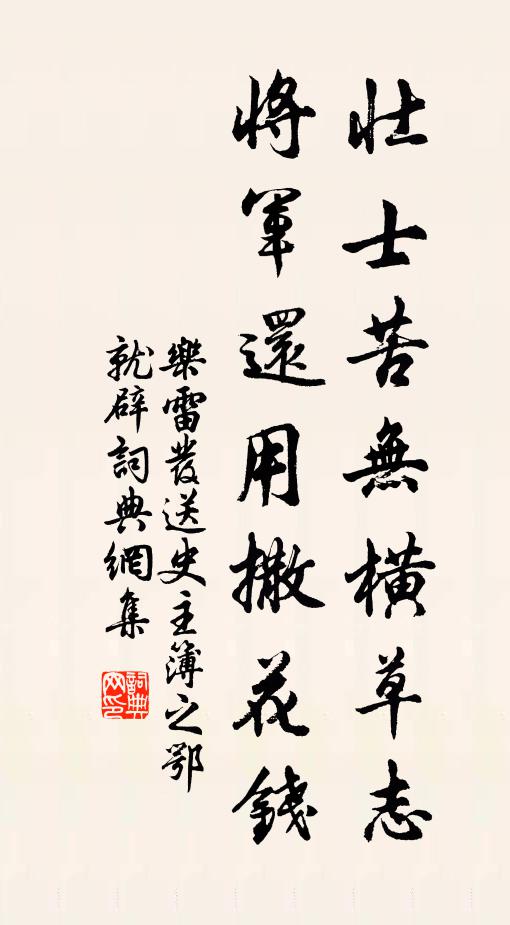 壯士苦無橫草志
將軍還用撒花錢
樂雷發送史主簿之鄂
就辟詞典網集
詞典网印